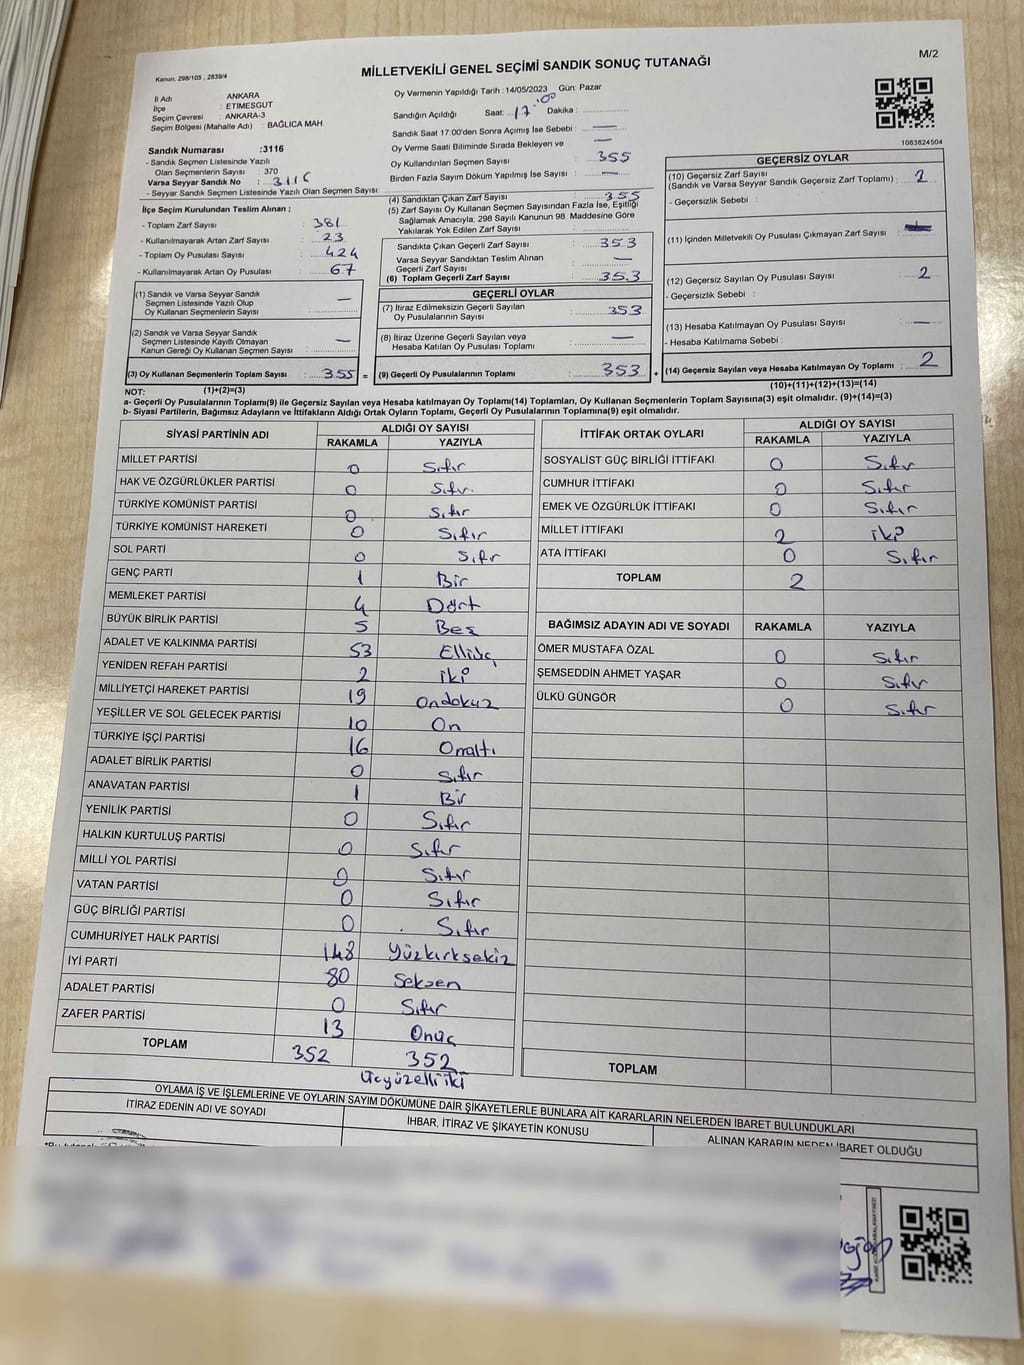 M/2
Kanun, 298/105 , 2839/4
MİLLETVEKİLİ GENEL SEÇİMİ SANDIK SONUÇ TUTANAĞI
İl Adı : ANKARA
İlçe : ETİMESGUT
Seçim Çevresi : ANKARA-3
Seçim Bölgesi (Mahalle Adı) : BAĞLICA MAH.
Oy Vermenin Yapıldığı Tarih : 14/05/2023 Gün: Pazar
Sandığın Açıldığı Saat: 17:00 Dakika :
Sandık Saat 17.00'den Sonra Açımış İse Sebebi : —
Oy Verme Saati Bitiminde Sırada Bekleyen ve —
Oy Kullandırılan Seçmen Sayısı : 355
Birden Fazla Sayım Döküm Yapılmış İse Sayısı : —
1083824504
Sandık Numarası :3116
- Sandık Seçmen Listesinde Yazılı
Olan Seçmenlerin Sayısı : 370
Varsa Seyyar Sandık No : 3116
- Seyyar Seçmen Listesinde Yazılı Olan Seçmen Sayısı:
İlçe Seçim Kurulundan Teslim Alınan ;
- Toplam Zarf Sayısı : 381
- Kullanılmayarak Artan Zarf Sayısı : 23
- Toplam Oy Pusulası Sayısı : 424
- Kullanılmayarak Artan Oy Pusulası : 67
(1) Sandık ve Varsa Seyyar Sandık
Seçmen Listesinde Yazılı Olup
Oy Kullanan Seçmenlerin Sayısı : —
(2) Sandık ve Varsa Seyyar Sandık
Seçmen Listesinde Kayıtlı Olmayan
Kanun Gereği Oy Kullanan Seçmen Sayısı : —
(3) Oy Kullanan Seçmenlerin Toplam Sayısı : 355 =
(1)+(2)=(3)
(4) Sandıktan Çıkan Zarf Sayısı : 355
(5) Zarf Sayısı Oy Kullanan Seçmen Sayısından Fazla İse, Eşitliği
Sağlamak Amacıyla; 298 Sayılı Kanunun 98. Maddesine Göre
Yakılarak Yok Edilen Zarf Sayısı :
Sandıkta Çıkan Geçerli Zarf Sayısı : 353
Varsa Seyyar Sandıktan Teslim Alınan
Geçerli Zarf Sayısı : —
(6) Toplam Geçerli Zarf Sayısı : 353
GEÇERLİ OYLAR
(7) İtiraz Edilmeksizin Geçerli Sayılan
Oy Pusulalarının Sayısı : 353
(8) İtiraz Üzerine Geçerli Sayılan veya
Hesaba Katılan Oy Pusulası Toplamı : —
(9) Geçerli Oy Pusulalarının Toplamı : 353 +
GEÇERSİZ OYLAR
(10) Geçersiz Zarf Sayısı
(Sandık ve Varsa Seyyar Sandık Geçersiz Zarf Toplamı) : 2
- Geçersizlik Sebebi :
(11) İçinden Milletvekili Oy Pusulası Çıkmayan Zarf Sayısı :
(12) Geçersiz Sayılan Oy Pusulası Sayısı : 2
- Geçersizlik Sebebi :
(13) Hesaba Katılmayan Oy Pusulası Sayısı : —
- Hesaba Katılmama Sebebi :
(14) Geçersiz Sayılan veya Hesaba Katılmayan Oy Toplamı : 2
(10)+(11)+(12)+(13)=(14)
NOT:
a- Geçerli Oy Pusulalarının Toplamı(9) ile Geçersiz Sayılan veya Hesaba katılmayan Oy Toplamı(14) Toplamları, Oy Kullanan Seçmenlerin Toplam Sayısına(3) eşit olmalıdır. (9)+(14)=(3)
b- Siyasi Partilerin, Bağımsız Adayların ve İttifakların Aldığı Ortak Oyların Toplamı, Geçerli Oy Pusulalarının Toplamına(9) eşit olmalıdır.
SİYASİ PARTİNİN ADI ALDIĞI OY SAYISI
RAKAMLA YAZIYLA
MİLLET PARTİSİ 0 Sıfır
HAK VE ÖZGÜRLÜKLER PARTİSİ 0 Sıfır
TÜRKİYE KOMÜNİST PARTİSİ 0 Sıfır
TÜRKİYE KOMÜNİST HAREKETİ 0 Sıfır
SOL PARTİ 0 Sıfır
GENÇ PARTİ 1 Bir
MEMLEKET PARTİSİ 4 Dört
BÜYÜK BİRLİK PARTİSİ 5 Beş
ADALET VE KALKINMA PARTİSİ 53 Elliüç
YENİDEN REFAH PARTİSİ 2 iki
MİLLİYETÇİ HAREKET PARTİSİ 19 Ondokuz
YEŞİLLER VE SOL GELECEK PARTİSİ 10 On
TÜRKİYE İŞÇİ PARTİSİ 16 Onaltı
ADALET BİRLİK PARTİSİ 0 Sıfır
ANAVATAN PARTİSİ 1 Bir
YENİLİK PARTİSİ 0 Sıfır
HALKIN KURTULUŞ PARTİSİ 0 Sıfır
MİLLİ YOL PARTİSİ 0 Sıfır
VATAN PARTİSİ 0 Sıfır
GÜÇ BİRLİĞİ PARTİSİ 0 Sıfır
CUMHURİYET HALK PARTİSİ 148 Yüzkırksekiz
İYİ PARTİ 80 Seksen
ADALET PARTİSİ 0 Sıfır
ZAFER PARTİSİ 13 Onüç
TOPLAM 352 352
Üçyüzelliiki
İTTİFAK ORTAK OYLARI ALDIĞI OY SAYISI
RAKAMLA YAZIYLA
SOSYALİST GÜÇ BİRLİĞİ İTTİFAKI 0 Sıfır
CUMHUR İTTİFAKI 0 Sıfır
EMEK VE ÖZGÜRLÜK İTTİFAKI 0 Sıfır
MİLLET İTTİFAKI 2 iki
ATA İTTİFAKI 0 Sıfır
TOPLAM 2
BAĞIMSIZ ADAYIN ADI VE SOYADI RAKAMLA YAZIYLA
ÖMER MUSTAFA ÖZAL 0 Sıfır
ŞEMSEDDİN AHMET YAŞAR 0 Sıfır
ÜLKÜ GÜNGÖR 0 Sıfır
TOPLAM
OYLAMA İŞ VE İŞLEMLERİNE VE OYLARIN SAYIM DÖKÜMÜNE DAİR ŞİKAYETLERLE BUNLARA AİT KARARLARIN NELERDEN İBARET BULUNDUKLARI
İTİRAZ EDENİN ADI VE SOYADI İHBAR, İTİRAZ VE ŞİKAYETİN KONUSU ALINAN KARARIN NEDEN İBARET OLDUĞU